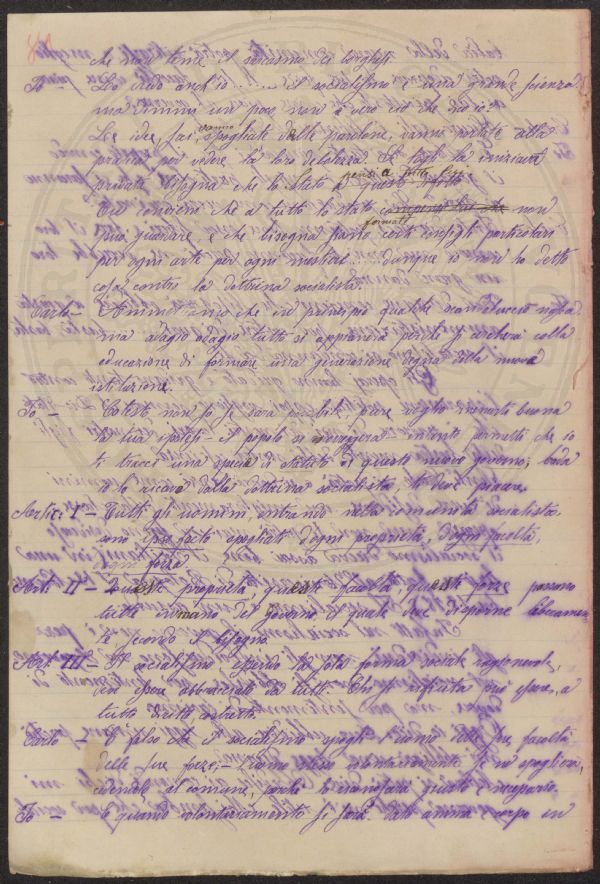 che non teme il sarcasmo dei borghesi.
Io — Lo credo anch'io ....... il socialismo è una grande scienza
ma dimmi un poco non è vero ciò che dico io:
Le idee, fai spogliate delle parolone, vanno portate alla
pratica per vedere la loro debolezza. Se togli la iniziativa
privata bisogna che lo Stato pensi a tutto
Tu conviene che a tutto lo stato non
può guardare, e che bisogna siano formati certi consigli particolari
per ogni arte per ogni mestiere ..... dunque io non ho detto
cosa contro la dottrina socialista.
Carlo — Ammetto anco che in principio qualche
ma adagio adagio tutto si appianerà perchè si cercherà colla
educazione di formare una generazione degna della nuova
istituzione.
Io — Cotesto non so se sarà possibile, pure voglio menarti buona
la tua ipotesi — il popolo si correggerà — intanto permetti che io
ti tracci una specie di statuto di questo nuovo governo; bada
io lo ricavo dalla dottrina socialista, ti deve piacere.
Artic: I° — Tutti gli uomini, entrando nella comunità socialista,
sono ipso facto spogliati d'ogni proprietà, d'ogni facoltà,
d'ogni forza
Art. II — Queste proprietà, queste facoltà, queste forze passano
tutte in mano del governo, il quale deve disporne liberamen
te secondo il bisogno.
Art. III — Il socialismo essendo la sola forma sociale ragionevole,
deve essere abbracciato da tutti. Chi si rifiuta può essere, a
tutto diritto costretto.
Carlo — È falso che il socialismo spogli l'uomo delle sue facoltà
delle sue forze; — L'uomo stesso volontariamente se ne spoglierà,
cedendole al comune, perchè lo
Io — E quando volontariamente si sarà dato anima e corpo in